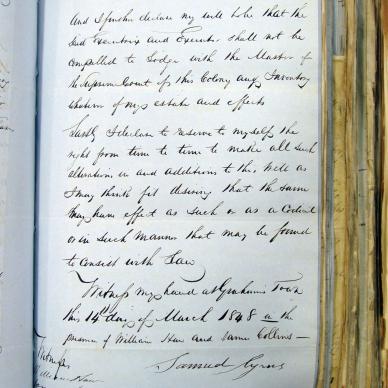 And I further declare my will to be that the
said Executrix and Executor shall not be
compelled to Lodge with the Master of
the Supreme Court of this Colony any Inventory
whatever of my estate and effects
Lastly I declare to reserve to myself the
right from time to time to make all such
alterations in and additions to this Will as
I may think fit desiring that the same
may have effect as such or as a Codicil
or in such Manner that may be found
to consist with Law
Witness my hand at Grahams Town
this 14th day of March 1848 in the
presence of William Haw and James Collins—
Samuel Cyrus
Witness
William Haw
James